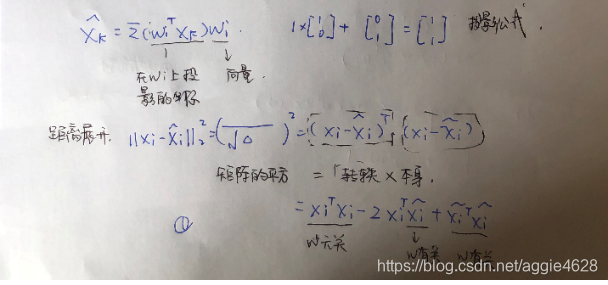 x̂k = Σ(wiᵀxk)wi. 1×[1 0] + [0 1] = [1 1] 投影公式.
在wi上投影的坐标 向量.
距离展开. ||xi-x̂i||₂² = (√Δ)² = (xi-x̂i)ᵀ(xi-x̂i)
矩阵的平方 = 「转换×本身.
① = xiᵀxi - 2xiᵀx̂i + x̂iᵀx̂i
w无关 w有关 w有关
https://blog.csdn.net/aggie4628